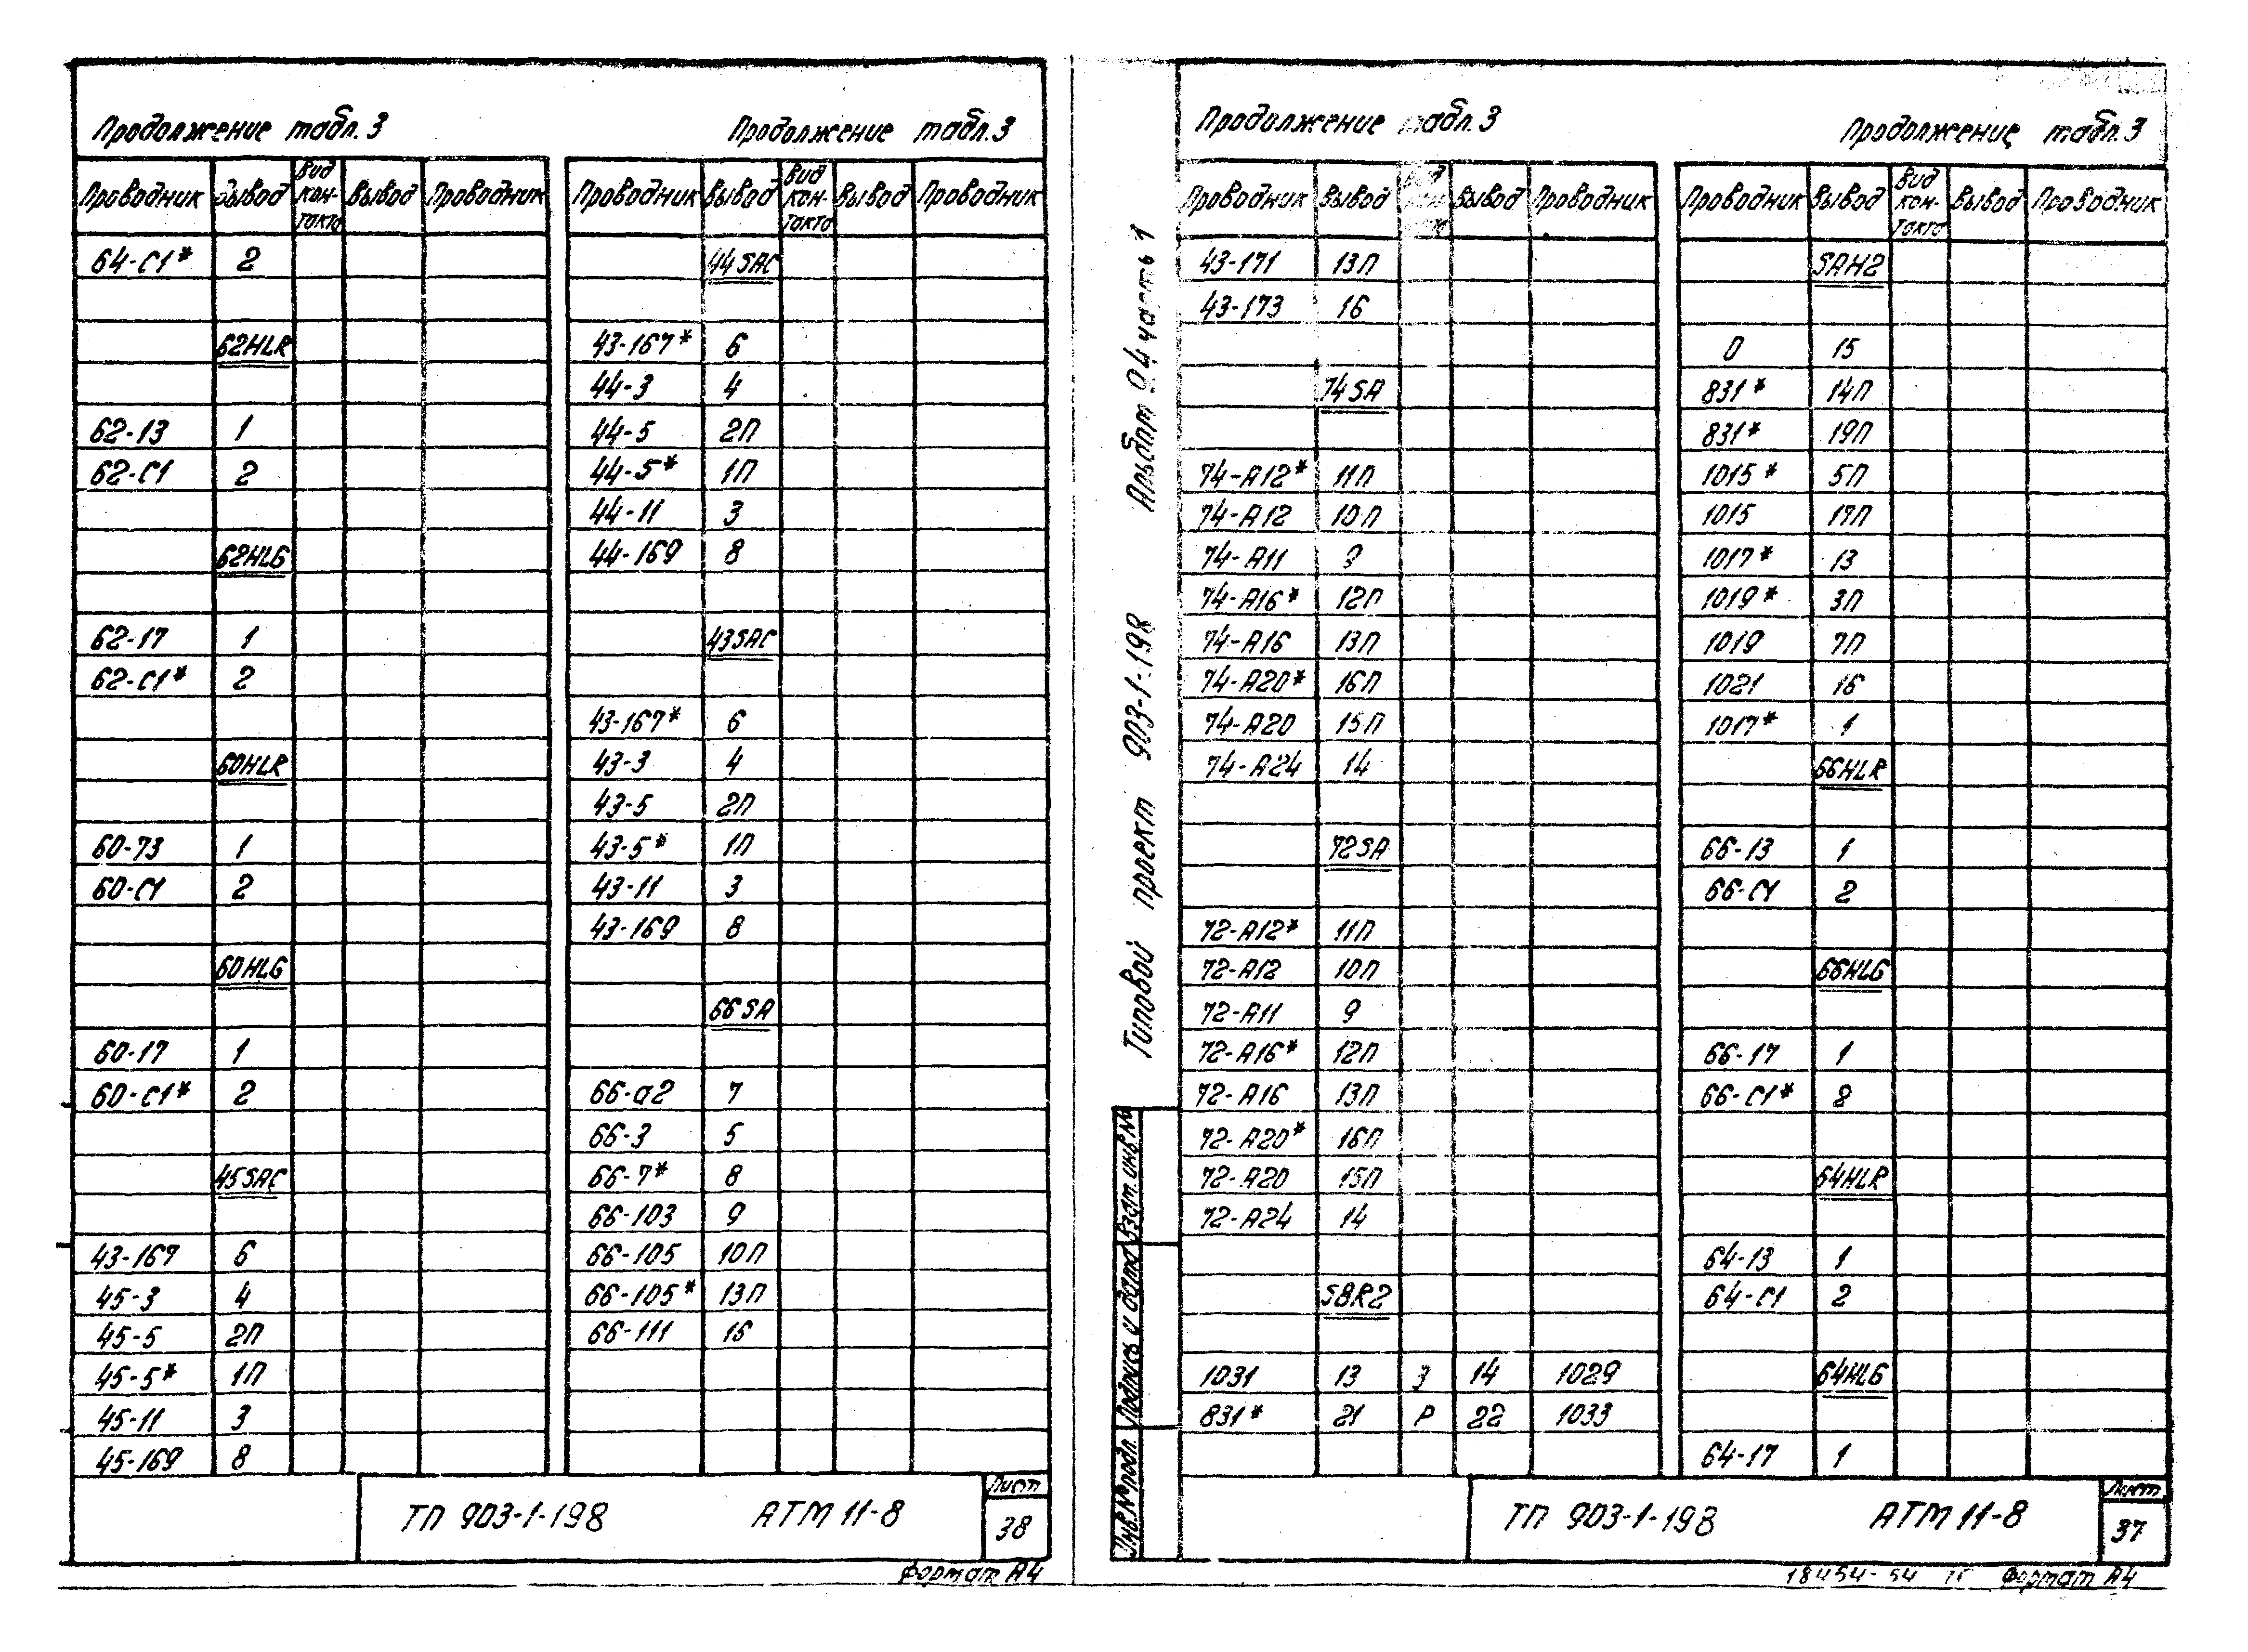 Продолжение табл.3
Проводник Вывод Вид кон- такта Вывод Проводник
64-С1* 2
62HLR
62-13 1
62-С1 2
62HLG
62-17 1
62-С1* 2
60HLR
60-73 1
60-С1 2
60HLG
60-17 1
60-С1* 2
45SAC
43-167 6
45-3 4
45-5 2П
45-5* 1П
45-11 3
45-169 8
Продолжение табл.3
Проводник Вывод Вид кон- такта Вывод Проводник
44SAC
43-167* 6
44-3 4
44-5 2П
44-5* 1П
44-11 3
44-169 8
43SAC
43-167* 6
43-3 4
43-5 2П
43-5* 1П
43-11 3
43-169 8
66SA
66-а2 7
66-3 5
66-7* 8
66-103 9
66-105 10П
66-105* 13П
66-111 16
ТП 903-1-198 АТМ 11-8
Лист
38
Формат А4
Типовой проект 903-1-198 Альбом 9.4 часть 1
Инв.№ подл. Подпись и дата Взам. инв.№
Продолжение табл.3
Проводник Вывод Вывод Проводник
43-171 13П
43-173 16
74SA
74-А12* 11П
74-А12 10П
74-А11 9
74-А16* 12П
74-А16 13П
74-А20* 16П
74-А20 15П
74-А24 14
72SA
72-А12* 11П
72-А12 10П
72-А11 9
72-А16* 12П
72-А16 13П
72-А20* 16П
72-А20 15П
72-А24 14
SBR2
1031 13 З 14 1029
831* 21 Р 22 1033
Продолжение табл.3
Проводник Вывод Вид кон- такта Вывод Проводник
SAH2
0 15
831* 14П
831* 19П
1015* 5П
1015 17П
1017* 13
1019* 3П
1019 7П
1021 16
1017* 1
66HLR
66-13 1
66-С1 2
66HLG
66-17 1
66-С1* 8
64HLR
64-13 1
64-С1 2
64HLG
64-17 1
ТП 903-1-198 АТМ 11-8
Лист
37
18454-54 Формат А4